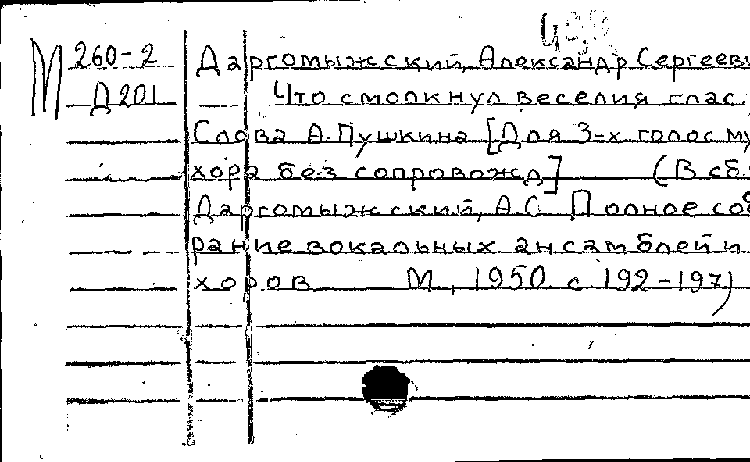 М 260-2 Даргомыжский, Александр Сергееви
Д201 Что смолкнул веселия глас.
Слова А. Пушкина [Для 3-х голос му
хора без сопровожд] (В сб.
Даргомыжский, А.С. Полное соб
рание вокальных ансамблей и
хоров М., 1950. с 192-197)